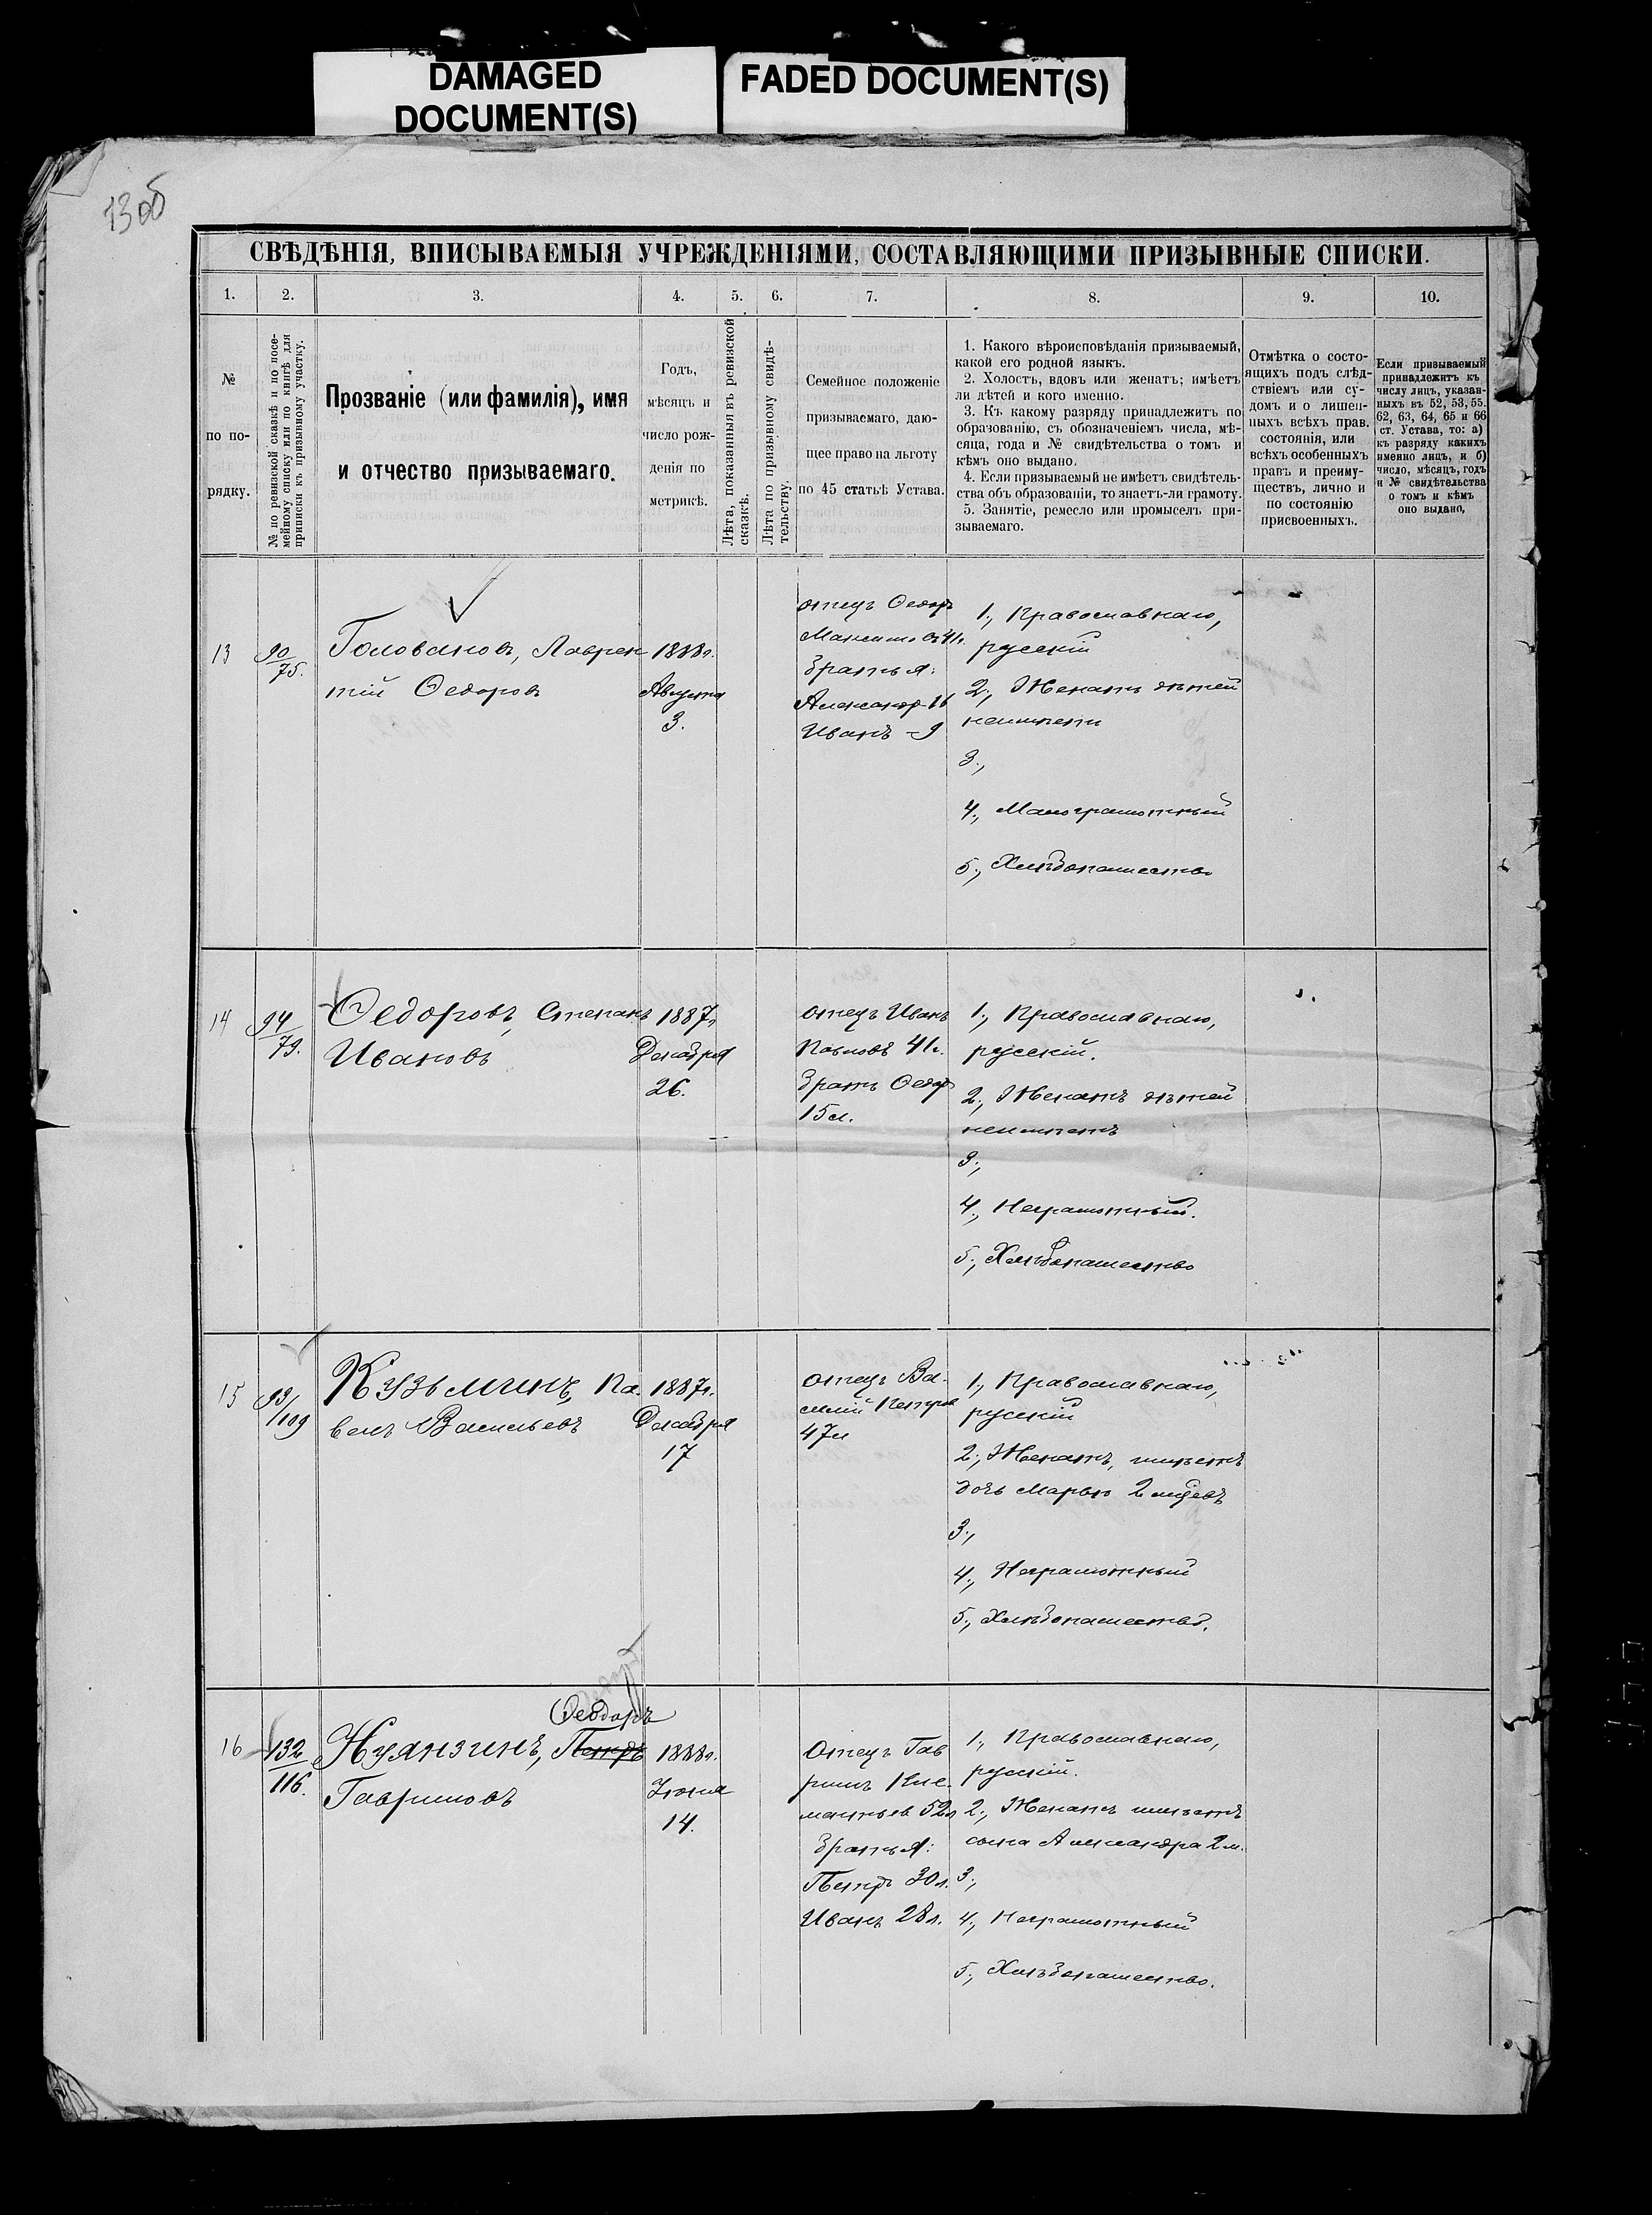 DAMAGED
DOCUMENT(S)
FADED DOCUMENT(S)
13 об
СВѢДѢНІЯ, ВПИСЫВАЕМЫЯ УЧРЕЖДЕНІЯМИ, СОСТАВЛЯЮЩИМИ ПРИЗЫВНЫЕ СПИСКИ.
1. 2. 3. 4. 5. 6. 7. 8. 9. 10.
№
по по-
рядку.
№ по ревизской сказкѣ и по посе-
мейному списку или по книгѣ для
приписки къ призывному участку.
Прозваніе (или фамилія), имя
и отчество призываемаго.
Годъ,
мѣсяцъ и
число рож-
денія по
метрикѣ.
Лѣта, показанныя въ ревизской
сказкѣ.
Лѣта по призывному свидѣ-
тельству.
Семейное положеніе
призываемаго, даю-
щее право на льготу
по 45 статьѣ Устава.
1. Какого вѣроисповѣданія призываемый,
какой его родной языкъ.
2. Холостъ, вдовъ или женатъ; имѣетъ
ли дѣтей и кого именно.
3. Къ какому разряду принадлежитъ по
образованію, съ обозначеніемъ числа, мѣ-
сяца, года и № свидѣтельства о томъ и
кѣмъ оно выдано.
4. Если призываемый не имѣетъ свидѣтель-
ства объ образованіи, то знаетъ-ли грамоту.
5. Занятіе, ремесло или промыселъ при-
зываемаго.
Отмѣтка о состо-
ящихъ подъ слѣд-
ствіемъ или су-
домъ и о лишен-
ныхъ всѣхъ прав.
состоянія, или
всѣхъ особенныхъ
правъ и преиму-
ществъ, лично и
по состоянію
присвоенныхъ.
Если призываемый
принадлежитъ къ
числу лицъ, указан-
ныхъ въ 52, 53, 55.
62, 63, 64, 65 и 66
ст. Устава, то: а)
къ разряду какихъ
именно лицъ, и б)
число, мѣсяцъ, годъ
и № свидѣтельства
о томъ и кѣмъ
оно выдано,
13
90
75.
Головановъ, Лаврен
тій Ѳедоровъ
1888г.
Августа
3.
отецъ Ѳедоръ
Максимовъ 41г.
братья:
Александр 16
Иванъ - 9
1., Православнаго,
русскій
2., Женатъ дѣтей
неимѣетъ
3.,
4., Малограмотный
5., Хлѣбопашество
14
94
79.
Ѳедоровъ, Степанъ
Ивановъ
1887г.
Декабря
26.
отецъ Иванъ
Павловъ 41г.
братъ Ѳедоръ
15л.
1., Православнаго,
русскій.
2., Женатъ дѣтей
неимѣетъ
3.,
4., Неграмотный.
5., Хлѣбопашество
15
93/
109
Кузьминъ, Па-
велъ Васильевъ
1887г.
Декабря
17
отецъ Ва-
силій Петров
47л
1., Православнаго,
русскій
2., Женатъ, имѣетъ
дочь Марью 2 мѣсяцъ
3.,
4., Неграмотный
5., Хлѣбопашество.
16
132
116.
Ѳедоръ
Нуянзинъ, Петръ
Гавриловъ
1888г.
Іюня
14.
Отецъ Гав
рилъ Кле-
ментьев 52л
братья:
Петръ 30л.
Иванъ 28л.
1., Православнаго,
русскій.
2., Женатъ имѣетъ
сына Александра 2м.
3.,
4., Неграмотный
5., Хлѣбопашество.